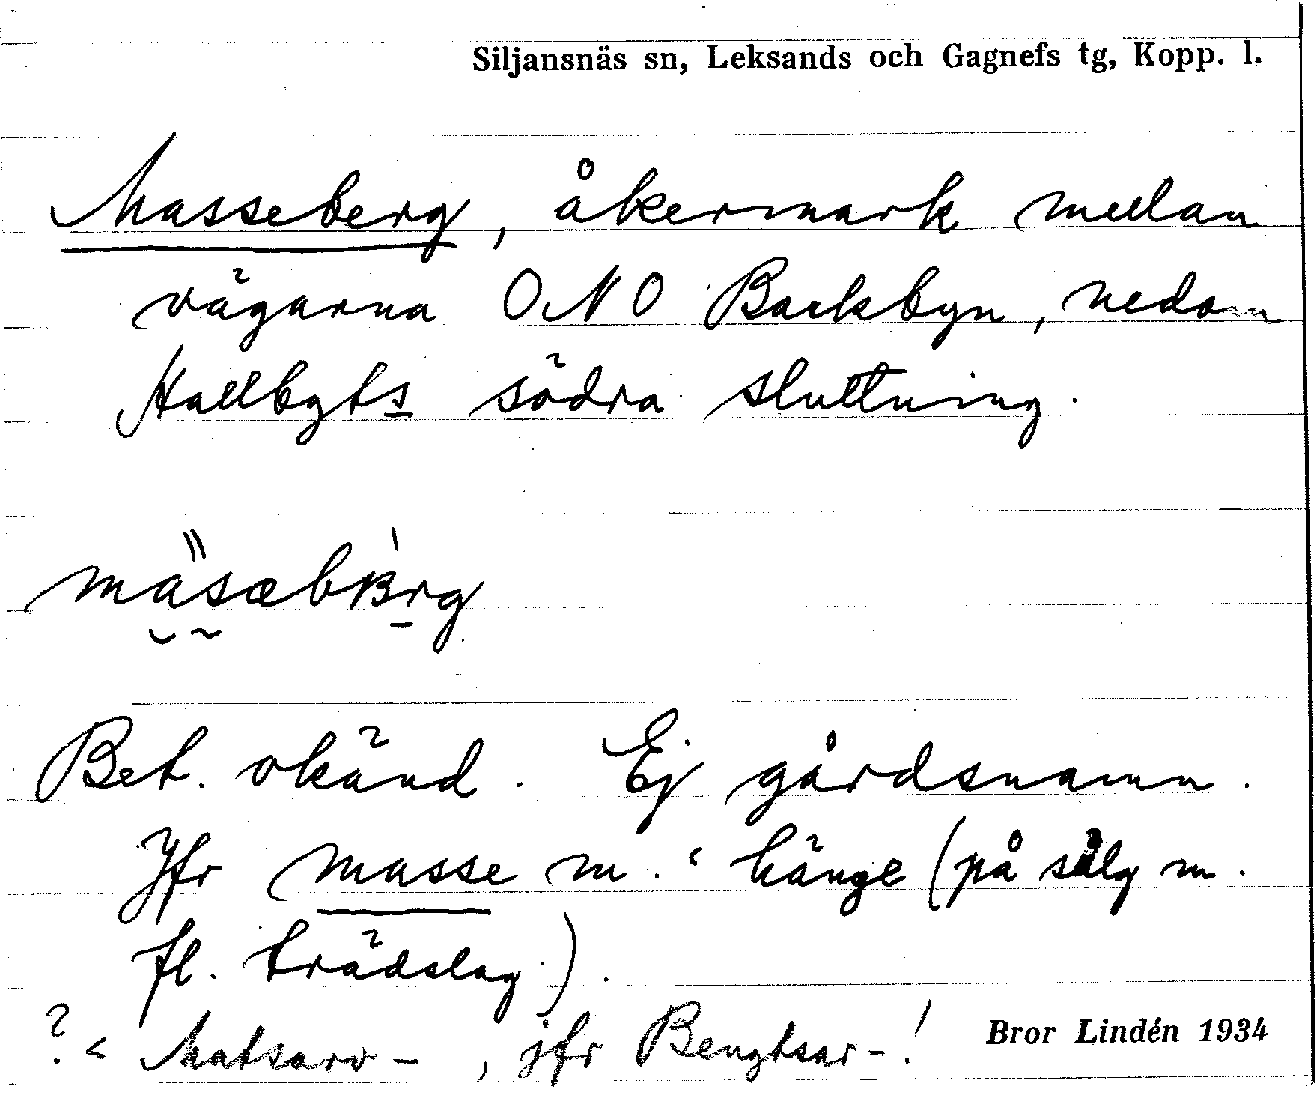 Siljansnäs sn, Leksands och Gagnefs tg, Kopp. l.
Masseberg, åkermark mellan
vägarna ONO Backbyn, nedom
Hallbyts södra sluttning.
Bet. okänd. Ej gårdsnamn.
Jfr masse m. 'hänge (på sälg m.
fl. trädslag).
? < Matsarv-, jfr Bengtsar-!
Bror Lindén 1934